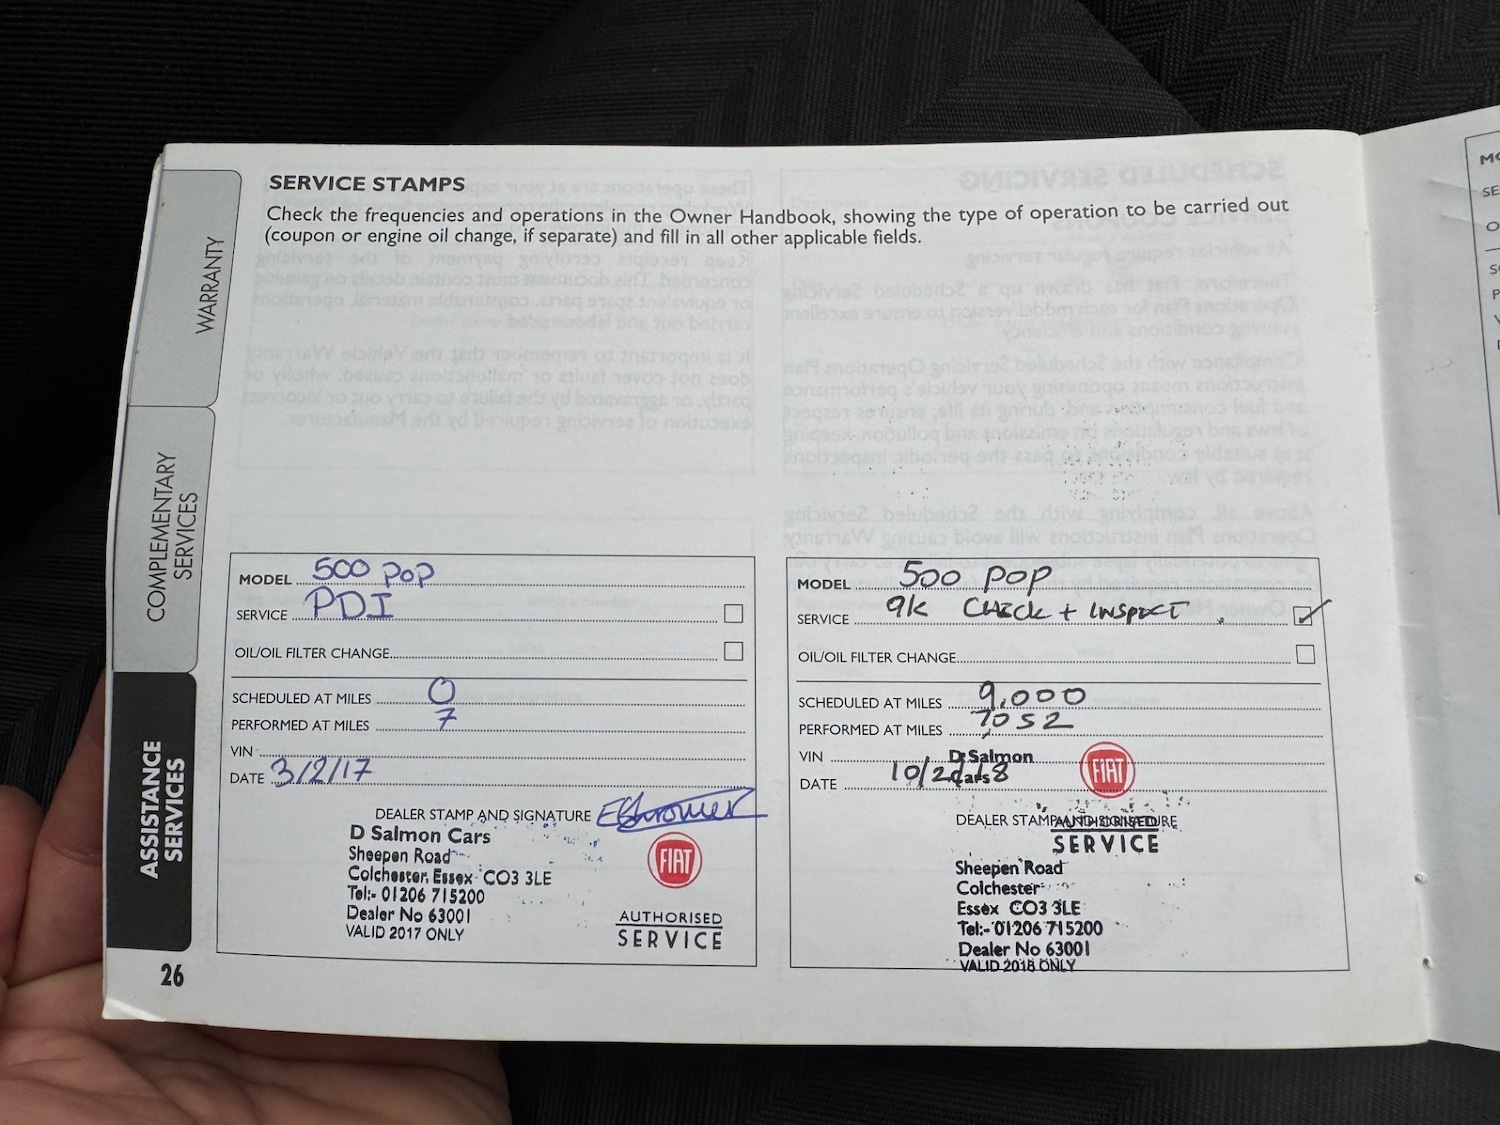 SERVICE STAMPS
Check the frequencies and operations in the Owner Handbook, showing the type of operation to be carried out
(coupon or engine oil change, if separate) and fill in all other applicable fields.
WARRANTY
COMPLEMENTARY
SERVICES
ASSISTANCE
SERVICES
26
MODEL 500 POP
SERVICE PDI
OIL/OIL FILTER CHANGE
SCHEDULED AT MILES 0
PERFORMED AT MILES 7
VIN
DATE 3/2/17
DEALER STAMP AND SIGNATURE
D Salmon Cars
Sheepen Road
Colchester, Essex CO3 3LE
Tel:- 01206 715200
Dealer No 63001
VALID 2017 ONLY
FIAT
AUTHORISED
SERVICE
MODEL 500 POP
SERVICE 9K CHECK + INSPECT
OIL/OIL FILTER CHANGE
SCHEDULED AT MILES 9,000
PERFORMED AT MILES 7052
VIN
D Salmon
Cars
DATE 10/2/18
FIAT
DEALER STAMP AND SIGNATURE
AUTHORISED
SERVICE
Sheepen Road
Colchester
Essex CO3 3LE
Tel:- 01206 715200
Dealer No 63001
VALID 2018 ONLY